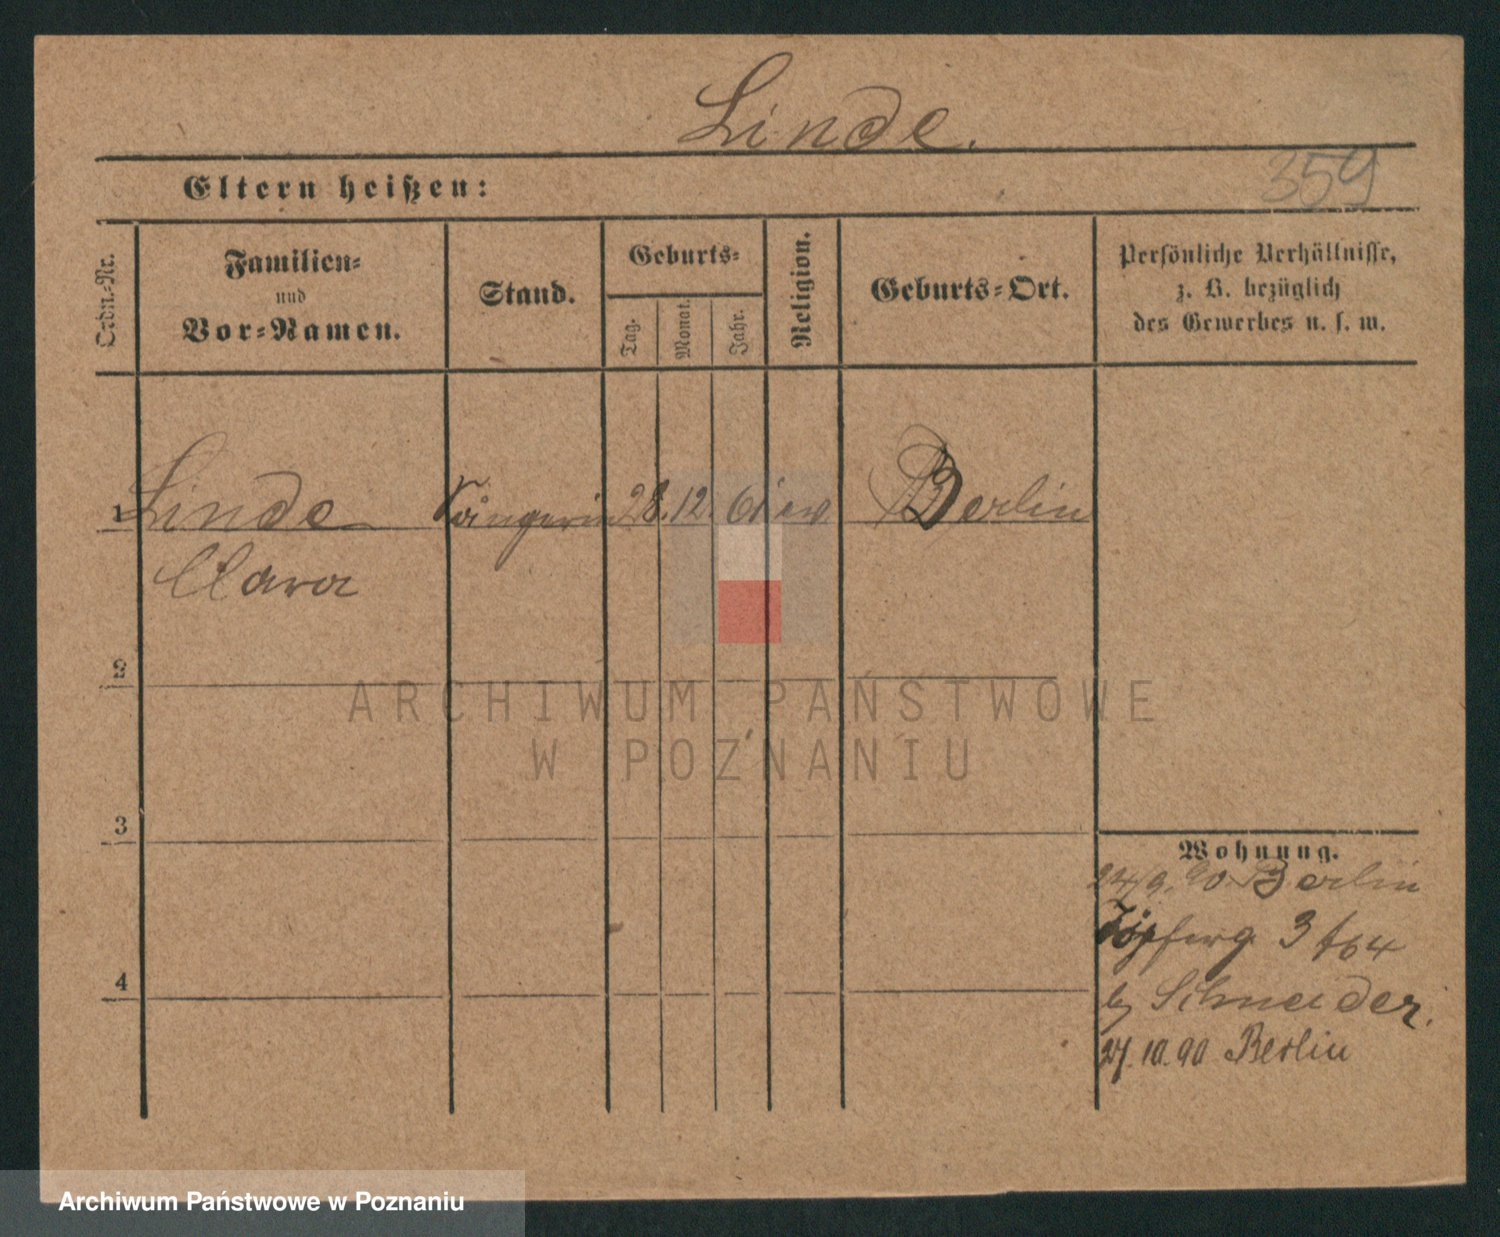 Linde.
359
Eltern heißen:
Ordn.-Nr.
Familien-
und
Vor-Namen.
Stand.
Geburts-
Tag.
Monat.
Jahr.
Religion.
Geburts-Ort.
Persönliche Verhältnisse,
z. B. bezüglich
des Gewerbes u. s. w.
1 Linde Sängerin 28. 12. 61 ev Berlin
Clara
2
3
4
Wohnung.
24/9. 90 Berlin
3
by Schneider.
27. 10. 90 Berlin
ARCHIWUM PAŃSTWOWE
W POZNANIU
Archiwum Państwowe w Poznaniu